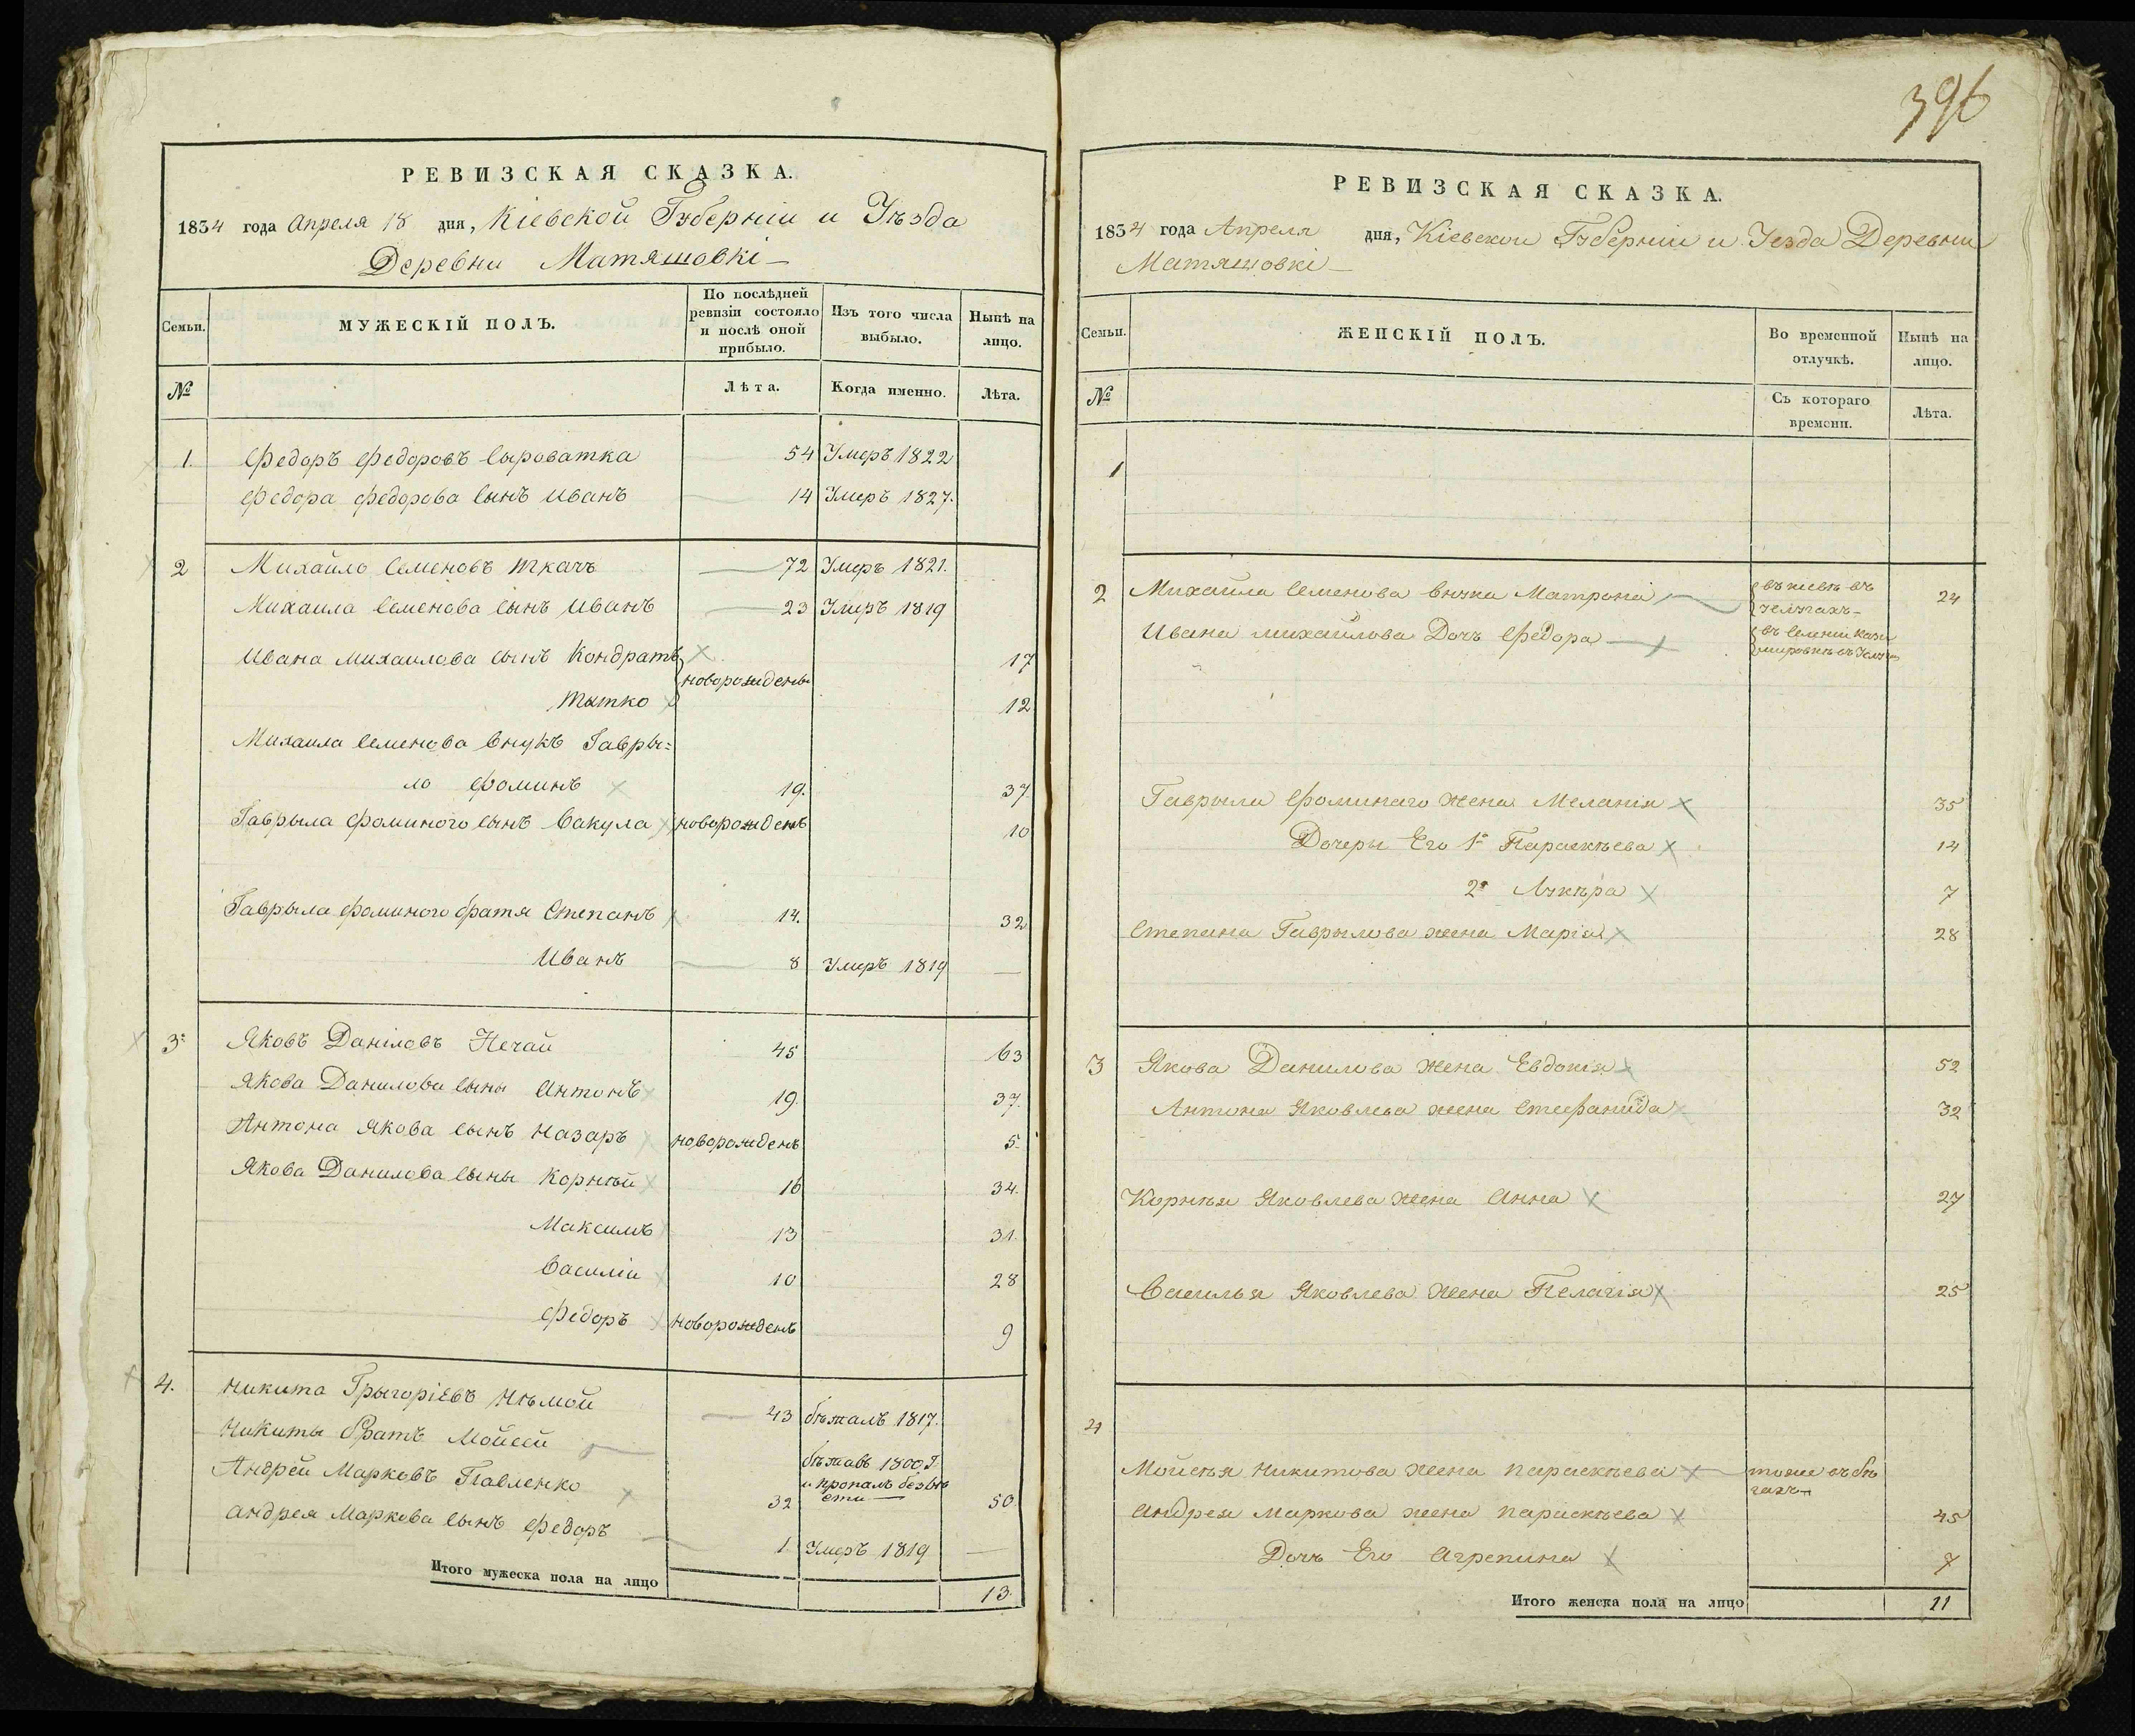 396
РЕВИЗСКАЯ СКАЗКА.
1834 года Апреля 18 дня, Кіевской Губерніи и Уѣзда
Деревни Матяшовкі
Семьи.
МУЖЕСКІЙ ПОЛЪ.
По послѣдней ревизіи состояло и послѣ оной прибыло.
Изъ того числа выбыло.
Нынѣ на лицо.
№
Лѣта.
Когда именно.
Лѣта.
1. Федоръ Федоровъ Сыроватка 54 Умеръ 1822
Федора Федорова сынъ Иванъ 14 Умеръ 1827.
2 Михайло Семеновъ Ткачъ 72 Умеръ 1821.
Михаила Семенова сынъ Иванъ 23 Умеръ 1819
Ивана Михаилова сынъ Кондратъ 17
новорождены
Тытко 12
Михаила Семенова внукъ Гавры=
ло Фоминъ 19. 37
Гаврыла Фоминого сынъ Вакула новорожденъ 10
Гаврыла Фоминого братя Степанъ 14. 32
Иванъ 8 Умеръ 1819 —
3 Яковъ Даніловъ Нечай 45 63
Якова Данилова сыны Антонъ 19. 37.
Антона Якова сынъ Назаръ новорожденъ 5.
Якова Данилова сыны Корнѣй 16 34.
Максимъ 13 31.
Василіи 10 28
Федоръ новорожденъ 9
4. Никита Грыгоріевъ Нѣмой 43 бѣжалъ 1817.
Никиты братъ Мойсей бѣжавъ 1800 г.
и пропалъ безвѣ
сти
Андрей Марковъ Павленко 32 50
Андрея Маркова сынъ Федоръ 1 Умеръ 1819 —
Итого мужеска пола на лицо 13.
РЕВИЗСКАЯ СКАЗКА.
1834 года Апреля дня, Кіевской Губерніи и Уезда Деревни
Матяшовкі
Семьи.
ЖЕНСКІЙ ПОЛЪ.
Во временной отлучкѣ.
Нынѣ на лицо.
№
Съ котораго времени.
Лѣта.
1
2 Михайла Семенова внука Матрона въ кіевѣ въ 24
Ивана Михайлова Дочь Федора въ селеніи кази
Гаврыла Фоминаго жена Меланія 35
Дочеры Его 1я Параскѣева 14
2я Лукѣра 7
Степана Гаврылова жена Марія 28
3 Якова Данилова жена Евдокія 52
Антона Яковлева жена Стефанида 32
Корнѣя Яковлева жена Анна 27
Василья Яковлева жена Пелагія 25
4
Мойсѣя Никитова жена параскѣева тоже въ бѣ
гахъ
Андрея Маркова жена параскѣева 45
Дочъ Его Агрепина 7
Итого женска пола на лицо 11